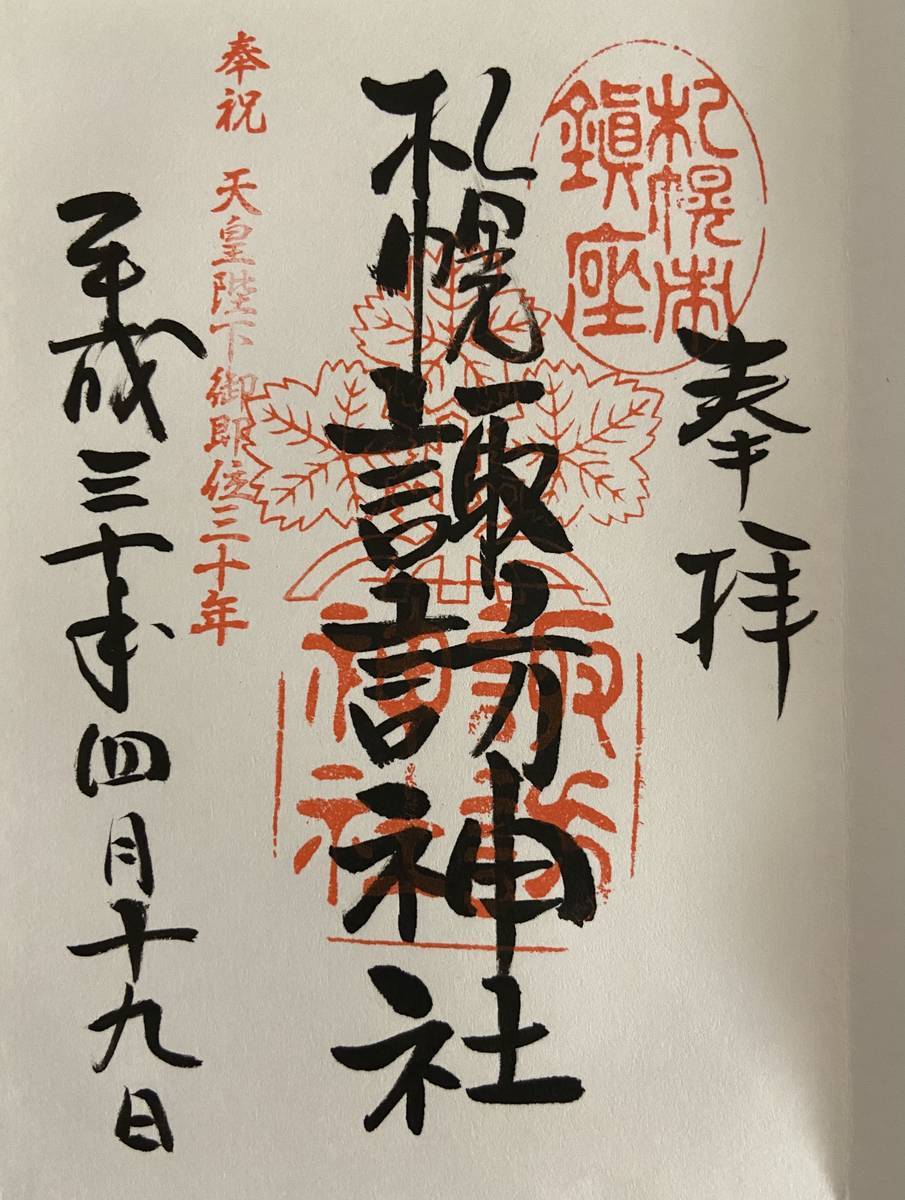 札幌市
鎮座
奉拝
札幌諏訪神社
諏訪
神社
奉祝 天皇陛下御即位三十年
平成三十年四月十九日